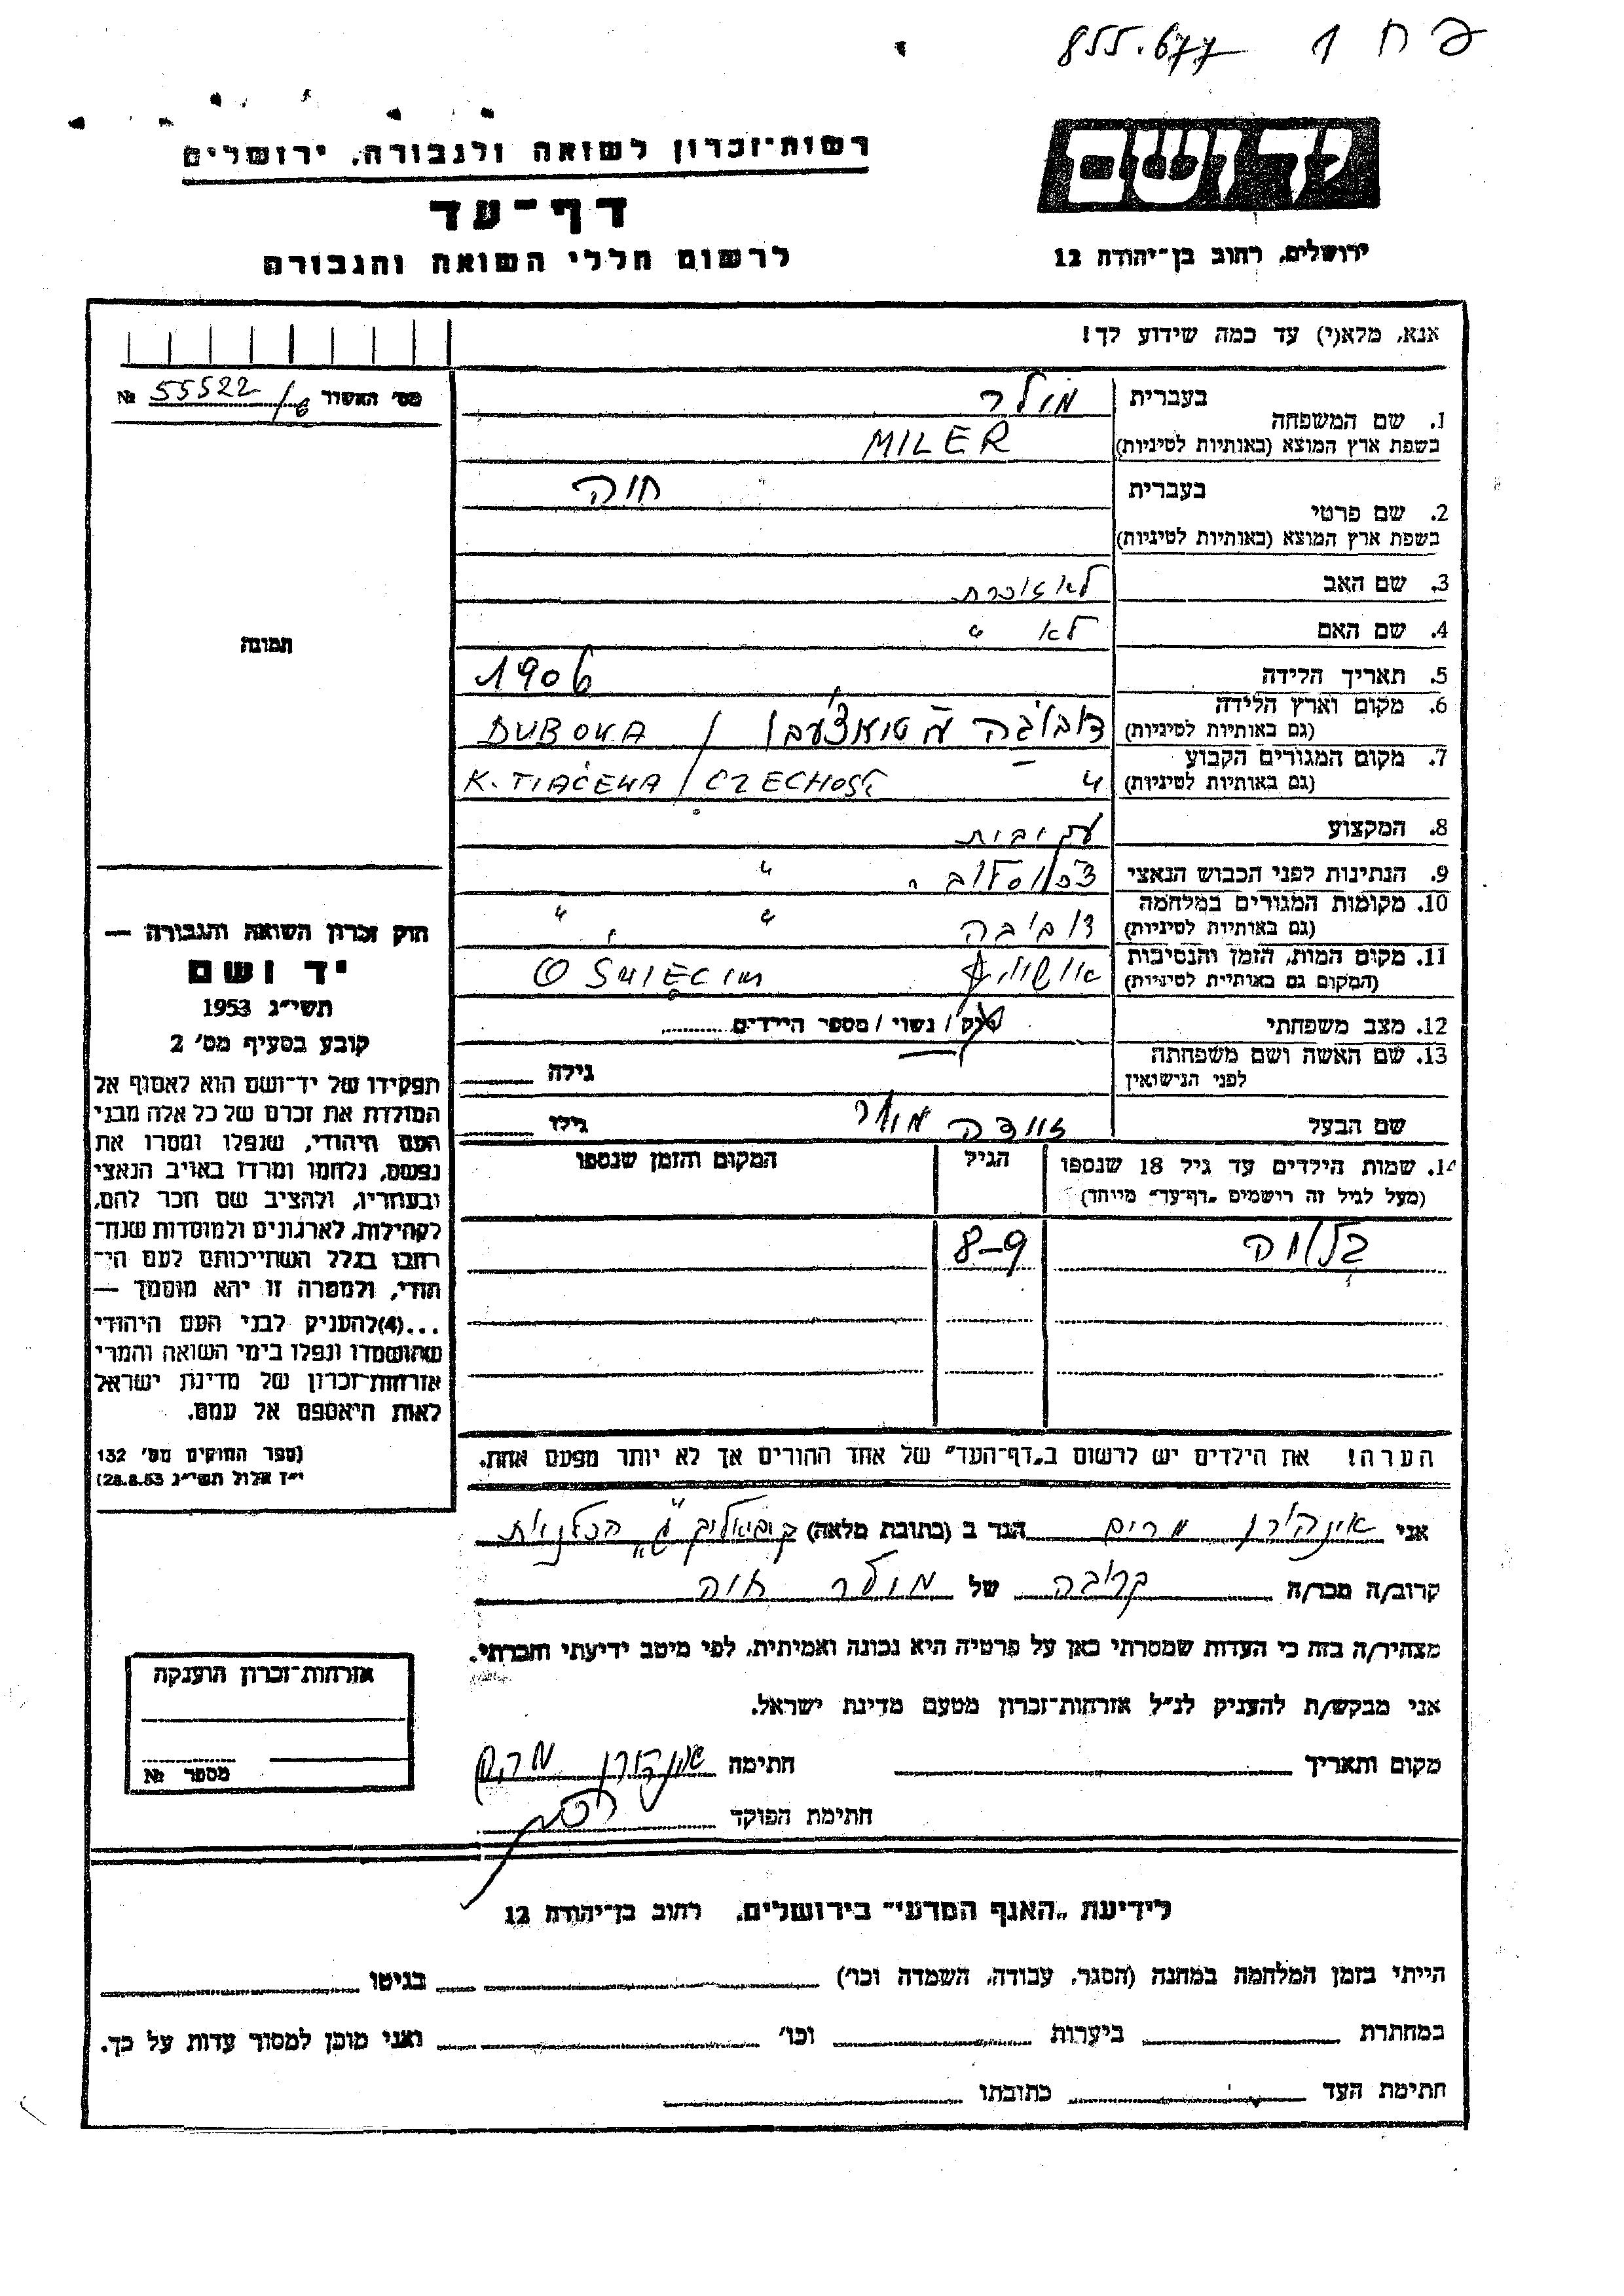 855.677 1 פ ח
יד ושם
ירושלים, רחוב בן־יהודה 12
רשות־זכרון לשואה ולגבורה, ירושלים
דף־עד
לרשום חללי השואה והגבורה
אנא, מלא(י) עד כמה שידוע לך!
מס' האשור 55522/ №
תמונה
1. שם המשפחה בעברית מולר
בשפת ארץ המוצא (באותיות לטיניות) MILER
2. שם פרטי בעברית חוה
בשפת ארץ המוצא (באותיות לטיניות)
3. שם האב לא זוכרת
4. שם האם לא "
5. תאריך הלידה 1906
6. מקום וארץ הלידה
(גם באותיות לטיניות) DUBOWA /
7. מקום המגורים הקבוע
(גם באותיות לטיניות) " K. TIAČEWA / CZECHOSł
8. המקצוע עקיבות
9. הנתינות לפני הכבוש הנאצי "
10. מקומות המגורים במלחמה
(גם באותיות לטיניות) דובובה " "
11. מקום המות, הזמן והנסיבות
(המקום גם באותיות לטיניות) OSWIĘCIM
12. מצב משפחתי רווק / נשוי / מספר הילדים
13. שם האשה ושם משפחתה
לפני הנישואין גילה
שם הבעל מולר גילו
14. שמות הילדים עד גיל 18 שנספו הגיל המקום והזמן שנספו
(מעל לגיל זה רושמים „דף־עד" מיוחד)
8-9
הערה! את הילדים יש לרשום ב„דף־העד" של אחד ההורים אך לא יותר מפעם אחת.
חוק זכרון השואה והגבורה —
יד ושם
תשי"ג 1953
קובע בסעיף מס' 2
תפקידו של יד־ושם הוא לאסוף אל
המולדת את זכרם של כל אלה מבני
העם היהודי, שנפלו ומסרו את
נפשם, נלחמו ומרדו באויב הנאצי
ובעוזריו, ולהציב שם וזכר להם,
לקהילות, לארגונים ולמוסדות שנח־
רבו בגלל השתייכותם לעם הי־
הודי, ולמטרה זו יהא מוסמך —
...(4)להעניק לבני העם היהודי
שהושמדו ונפלו בימי השואה והמרי
אזרחות־זכרון של מדינת ישראל
לאות היאספם אל עמם.
(ספר החוקים מס' 132
י"ז אלול תשי"ג 28.8.53)
אני מרים הגר ב (כתובת מלאה)
קרוב/ה מכר/ה קרובה של מולר חוה
מצהיר/ה בזה כי העדות שמסרתי כאן על פרטיה היא נכונה ואמיתית, לפי מיטב ידיעתי והכרתי.
אני מבקש/ת להעניק לנ"ל אזרחות־זכרון מטעם מדינת ישראל.
מקום ותאריך חתימה מרים
חתימת הפוקד
אזרחות־זכרון הוענקה
מספר №
לידיעת „האגף המדעי" בירושלים, רחוב בן־יהודה 12
הייתי בזמן המלחמה במחנה (הסגר, עבודה, השמדה וכו') בגיטו
במחתרת ביערות וכו' ואני מוכן למסור עדות על כך.
חתימת העד כתובתו